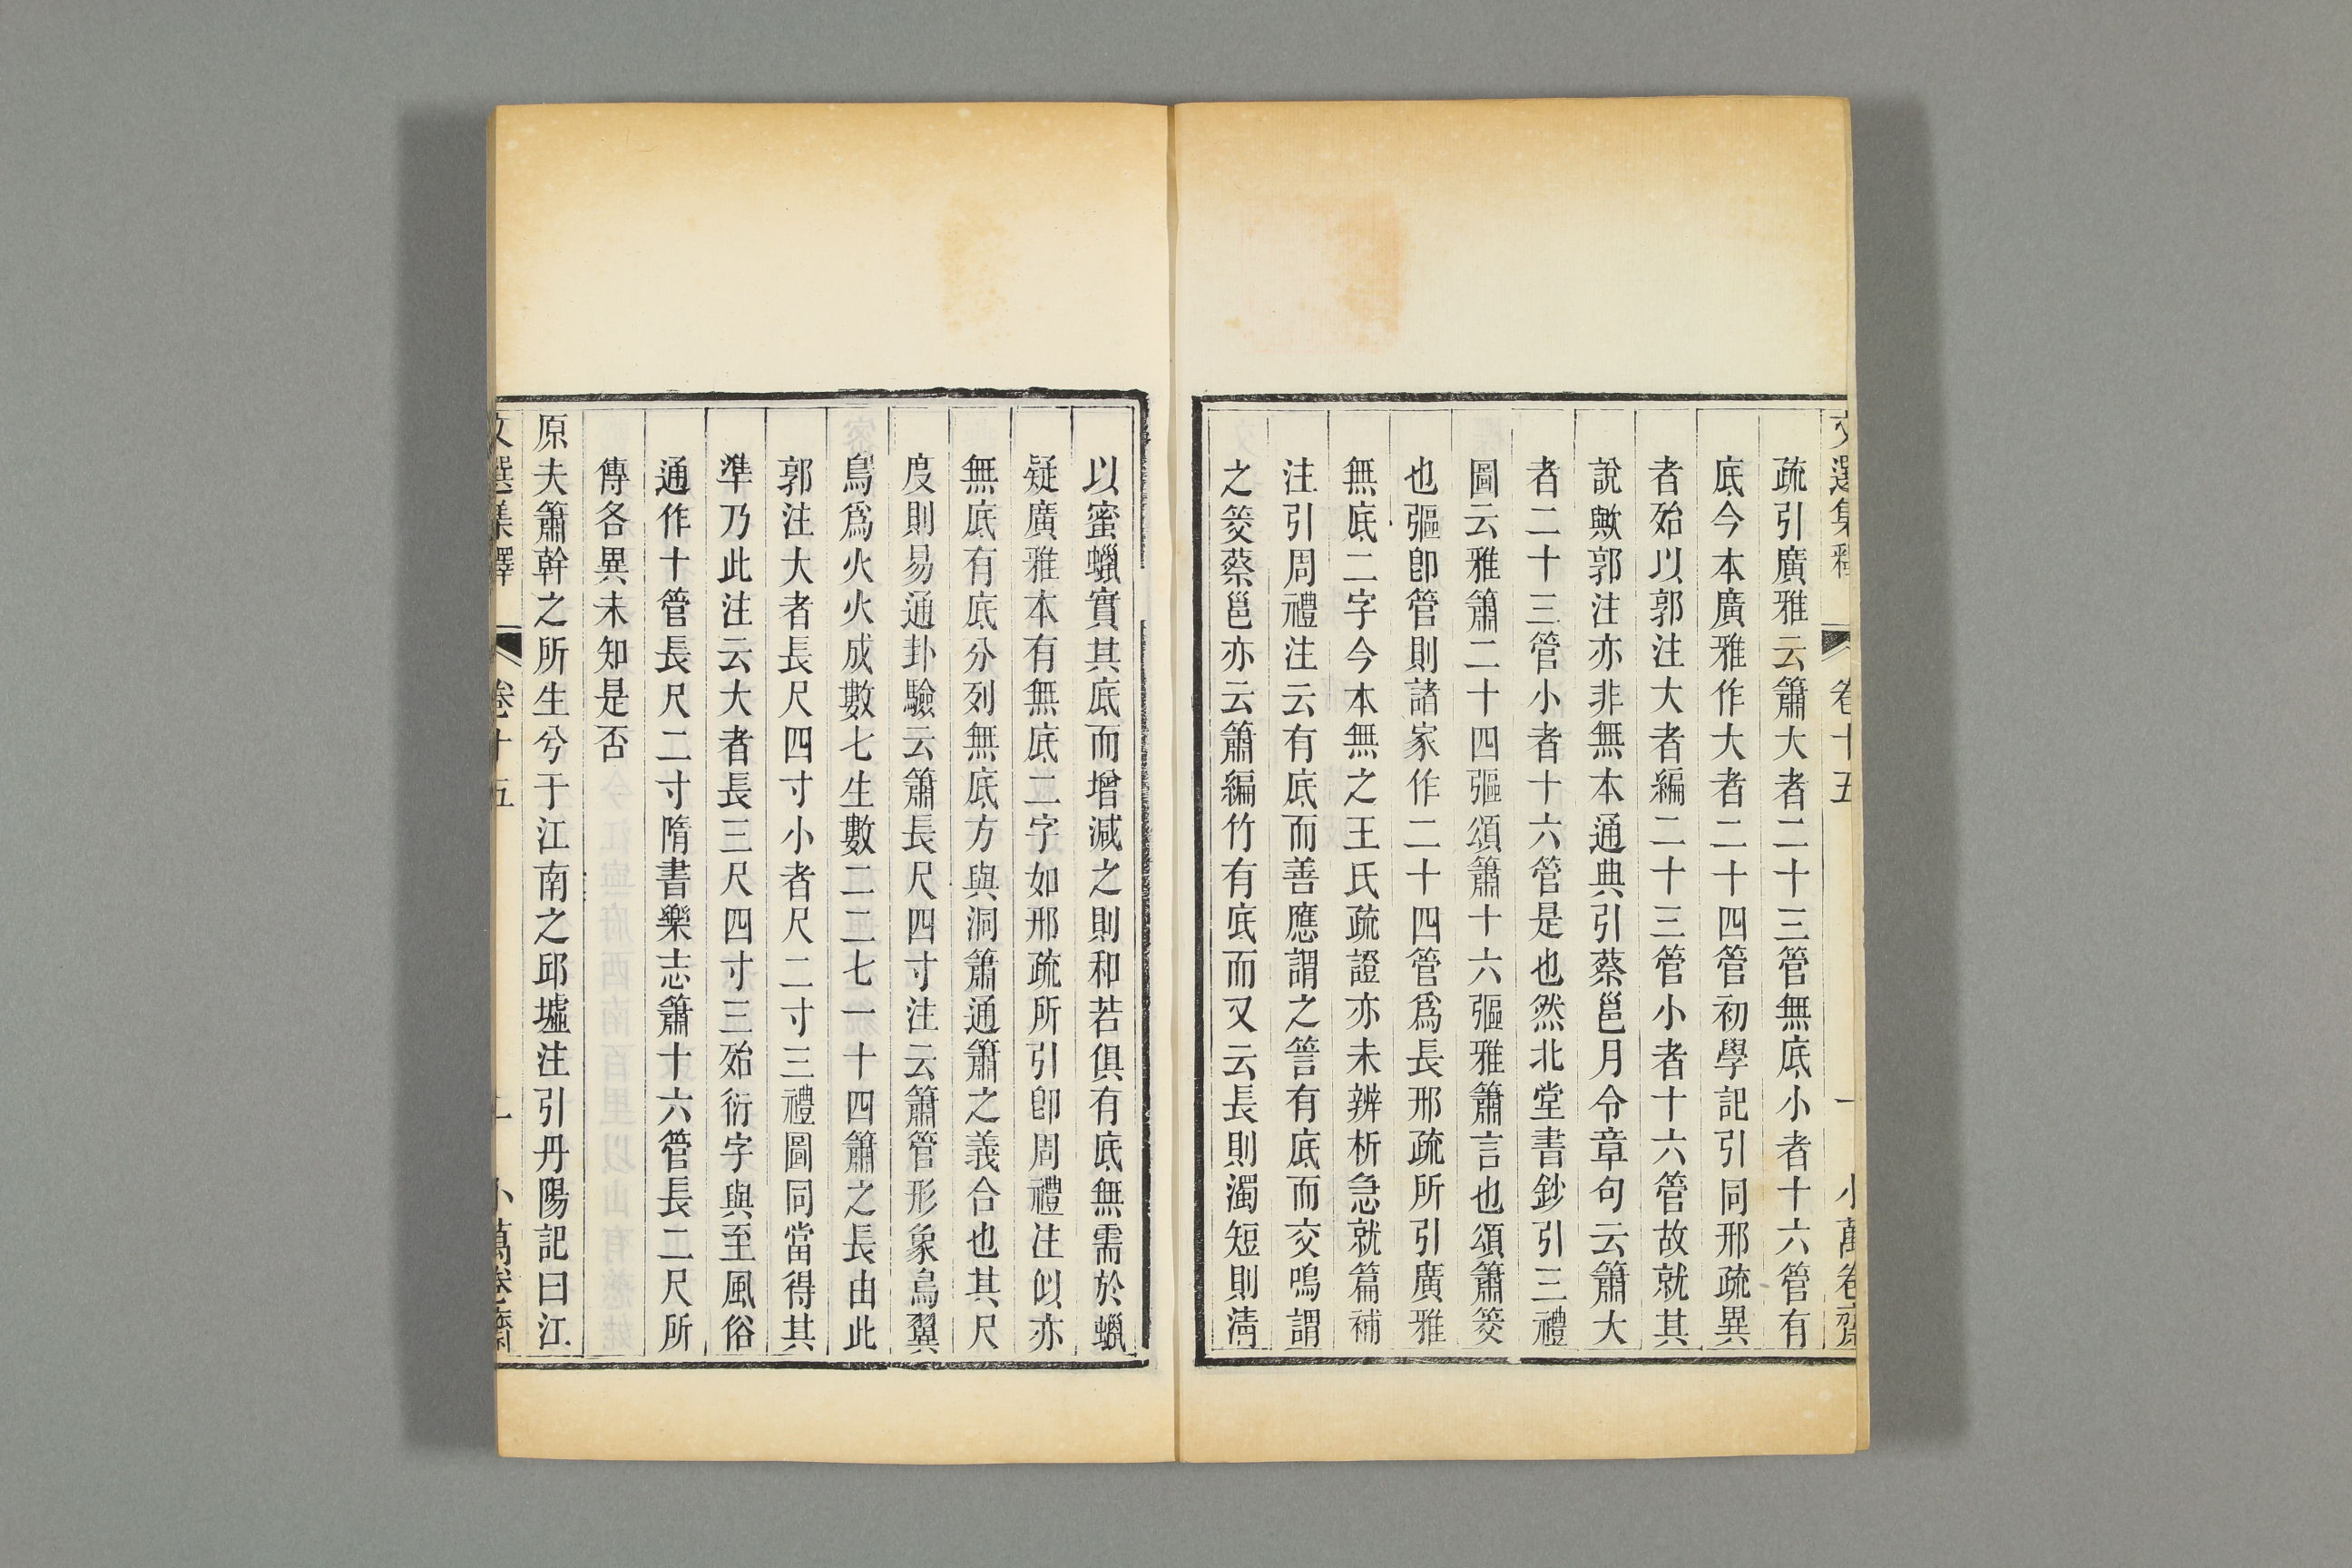 文選集釋 卷十五 一 小萬卷齋
疏引廣雅云簫大者二十三管無底小者十六管有
底今本廣雅作大者二十四管初學記引同邢疏異
者殆以郭注大者編二十三管小者十六管故就其
說歟郭注亦非無本通典引蔡邕月令章句云簫大
者二十三管小者十六管是也然北堂書鈔引三禮
圖云雅簫二十四彄頌簫十六彄雅簫言也頌簫筊
也彄卽管則諸家作二十四管爲長邢疏所引廣雅
無底二字今本無之王氏疏證亦未辨析急就篇補
注引周禮注云有底而善應謂之箮有底而交鳴謂
之筊蔡邕亦云簫編竹有底而又云長則濁短則淸
以蜜蠟實其底而增減之則和若俱有底無需於蠟
疑廣雅本有無底二字如邢疏所引卽周禮注似亦
無底有底分列無底方與洞簫通簫之義合也其尺
度則易通卦驗云簫長尺四寸注云簫管形象鳥翼
鳥爲火火成數七生數二二七一十四簫之長由此
郭注大者長尺四寸小者尺二寸三禮圖同當得其
準乃此注云大者長三尺四寸三殆衍字與至風俗
通作十管長尺二寸隋書樂志簫十六管長二尺所
傳各異未知是否
原夫簫幹之所生兮于江南之邱墟注引丹陽記曰江
文選集釋 卷十五 二 小萬卷齋